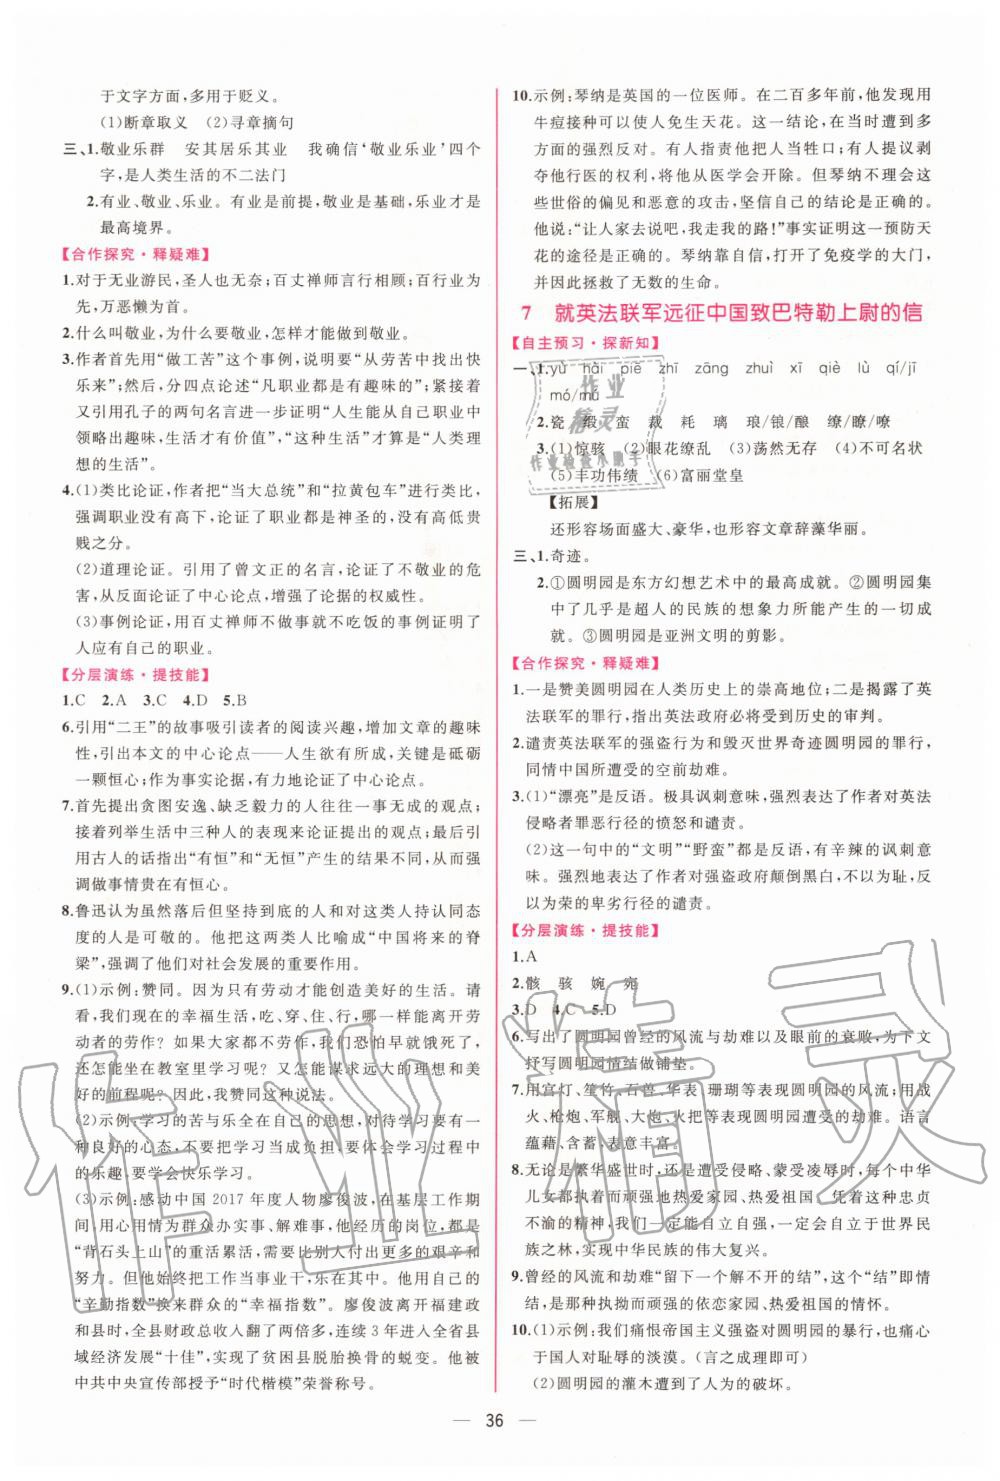 于文字方面，多用于贬义。
(1)断章取义　(2)寻章摘句
三、1.敬业乐群　安其居乐其业　我确信‘敬业乐业’四个
字，是人类生活的不二法门
2.有业、敬业、乐业。有业是前提，敬业是基础，乐业才是
最高境界。
【合作探究·释疑难】
1.对于无业游民，圣人也无奈；百丈禅师言行相顾；百行业为
先，万恶懒为首。
2.什么叫敬业，为什么要敬业，怎样才能做到敬业。
3.作者首先用“做工苦”这个事例，说明要“从劳苦中找出快
乐来”；然后，分四点论述“凡职业都是有趣味的”；紧接着
又引用孔子的两句名言进一步证明“人生能从自己职业中
领略出趣味，生活才有价值”，“这种生活”才算是“人类理
想的生活”。
4.(1)类比论证，作者把“当大总统”和“拉黄包车”进行类比，
强调职业没有高下，论证了职业都是神圣的，没有高低贵
贱之分。
(2)道理论证。引用了曾文正的名言，论证了不敬业的危
害，从反面论证了中心论点，增强了论据的权威性。
(3)事例论证，用百丈禅师不做事就不吃饭的事例证明了
人应有自己的职业。
【分层演练·提技能】
1.C　2.A　3.C　4.D　5.B
6.引用“二王”的故事吸引读者的阅读兴趣，增加文章的趣味
性，引出本文的中心论点——人生欲有所成，关键是砥砺
一颗恒心；作为事实论据，有力地论证了中心论点。
7.首先提出贪图安逸、缺乏毅力的人往往一事无成的观点；
接着列举生活中三种人的表现来论证提出的观点；最后引
用古人的话指出“有恒”和“无恒”产生的结果不同，从而强
调做事情贵在有恒心。
8.鲁迅认为虽然落后但坚持到底的人和对这类人持认同态
度的人是可敬的。他把这两类人比喻成“中国将来的脊
梁”，强调了他们对社会发展的重要作用。
9.(1)示例：赞同。因为只有劳动才能创造美好的生活。请
看，我们现在的幸福生活，吃、穿、住、行，哪一样能离开劳
动者的劳作？如果大家都不劳作，我们恐怕早就饿死了，
还怎能坐在教室里学习呢？又怎能谋求远大的理想和美
好的前程呢？因此，我赞同这种说法。
(2)示例：学习的苦与乐全在自己的思想，对待学习要有一
种良好的心态，不要把学习当成负担，要体会学习过程中
的乐趣，要学会快乐学习。
(3)示例：感动中国2017年度人物廖俊波，在基层工作期
间，用心用情为群众办实事、解难事，他经历的岗位，都是
“背石头上山”的重活累活，需要比别人付出更多的艰辛和
努力。但他始终把工作当事业干，乐在其中。他用自己的
“辛勤指数”换来群众的“幸福指数”。廖俊波离开福建政
和县时，全县财政总收入翻了两倍多，连续3年进入全省县
域经济发展“十佳”，实现了贫困县脱胎换骨的蜕变。他被
中共中央宣传部授予“时代楷模”荣誉称号。
10.示例：琴纳是英国的一位医师。在二百多年前，他发现用
牛痘接种可以使人免生天花。这一结论，在当时遭到多
方面的强烈反对。有人指责他把人当牲口；有人提议剥
夺他行医的权利，将他从医学会开除。但琴纳不理会这
些世俗的偏见和恶意的攻击，坚信自己的结论是正确的。
他说：“让人家去说吧，我走我的路！”事实证明这一预防天
花的途径是正确的。琴纳靠自信，打开了免疫学的大门，
并因此拯救了无数的生命。
7　就英法联军远征中国致巴特勒上尉的信
【自主预习·探新知】
一、1.yù　hài　piē　zhī　zāng　zhuì　xī　qiè　lù　qí/jī
mó/mú
2.瓷　缎　蛮　裁　耗　璃　琅/银/酿　缭/瞭/嘹
3.(1)惊骇　(2)眼花缭乱　(3)荡然无存　(4)不可名状
(5)丰功伟绩　(6)富丽堂皇
【拓展】
还形容场面盛大、豪华，也形容文章辞藻华丽。
三、1.奇迹。
2.①圆明园是东方幻想艺术中的最高成就。②圆明园集
中了几乎是超人的民族的想象力所能产生的一切成
就。③圆明园是亚洲文明的剪影。
【合作探究·释疑难】
1.一是赞美圆明园在人类历史上的崇高地位；二是揭露了英
法联军的罪行，指出英法政府必将受到历史的审判。
2.谴责英法联军的强盗行为和毁灭世界奇迹圆明园的罪行，
同情中国所遭受的空前劫难。
3.(1)“漂亮”是反语。极具讽刺意味，强烈表达了作者对英法
侵略者罪恶行径的愤怒和谴责。
(2)这一句中的“文明”“野蛮”都是反语，有辛辣的讽刺意
味。强烈地表达了作者对强盗政府颠倒黑白，不以为耻，反
以为荣的卑劣行径的谴责。
【分层演练·提技能】
1.A
2.骸　骇　婉　宛
3.D　4.C　5.D
6.写出了圆明园曾经的风流与劫难以及眼前的衰败，为下文
抒写圆明园情结做铺垫。
7.用宫灯、笙竹、石兽、华表、珊瑚等表现圆明园的风流；用战
火、枪炮、军舰、大炮、火把等表现圆明园遭受的劫难。语言
蕴藉、含蓄、表意丰富。
8.无论是繁华盛世时，还是遭受侵略、蒙受凌辱时，每个中华
儿女都会执拗而顽强地热爱家园、热爱祖国。凭着这种忠贞
不渝的精神，我们一定能自立自强，一定会自立于世界民
族之林，实现中华民族的伟大复兴。
9.曾经的风流和劫难“留下一个解不开的结”，这个“结”即情
结，是那种执拗而顽强的依恋家园、热爱祖国的情怀。
10.(1)示例：我们痛恨帝国主义强盗对圆明园的暴行，也痛心
于国人对耻辱的淡漠。(言之成理即可)
(2)圆明园的灌木遭到了人为的破坏。
— 36 —
作业精灵